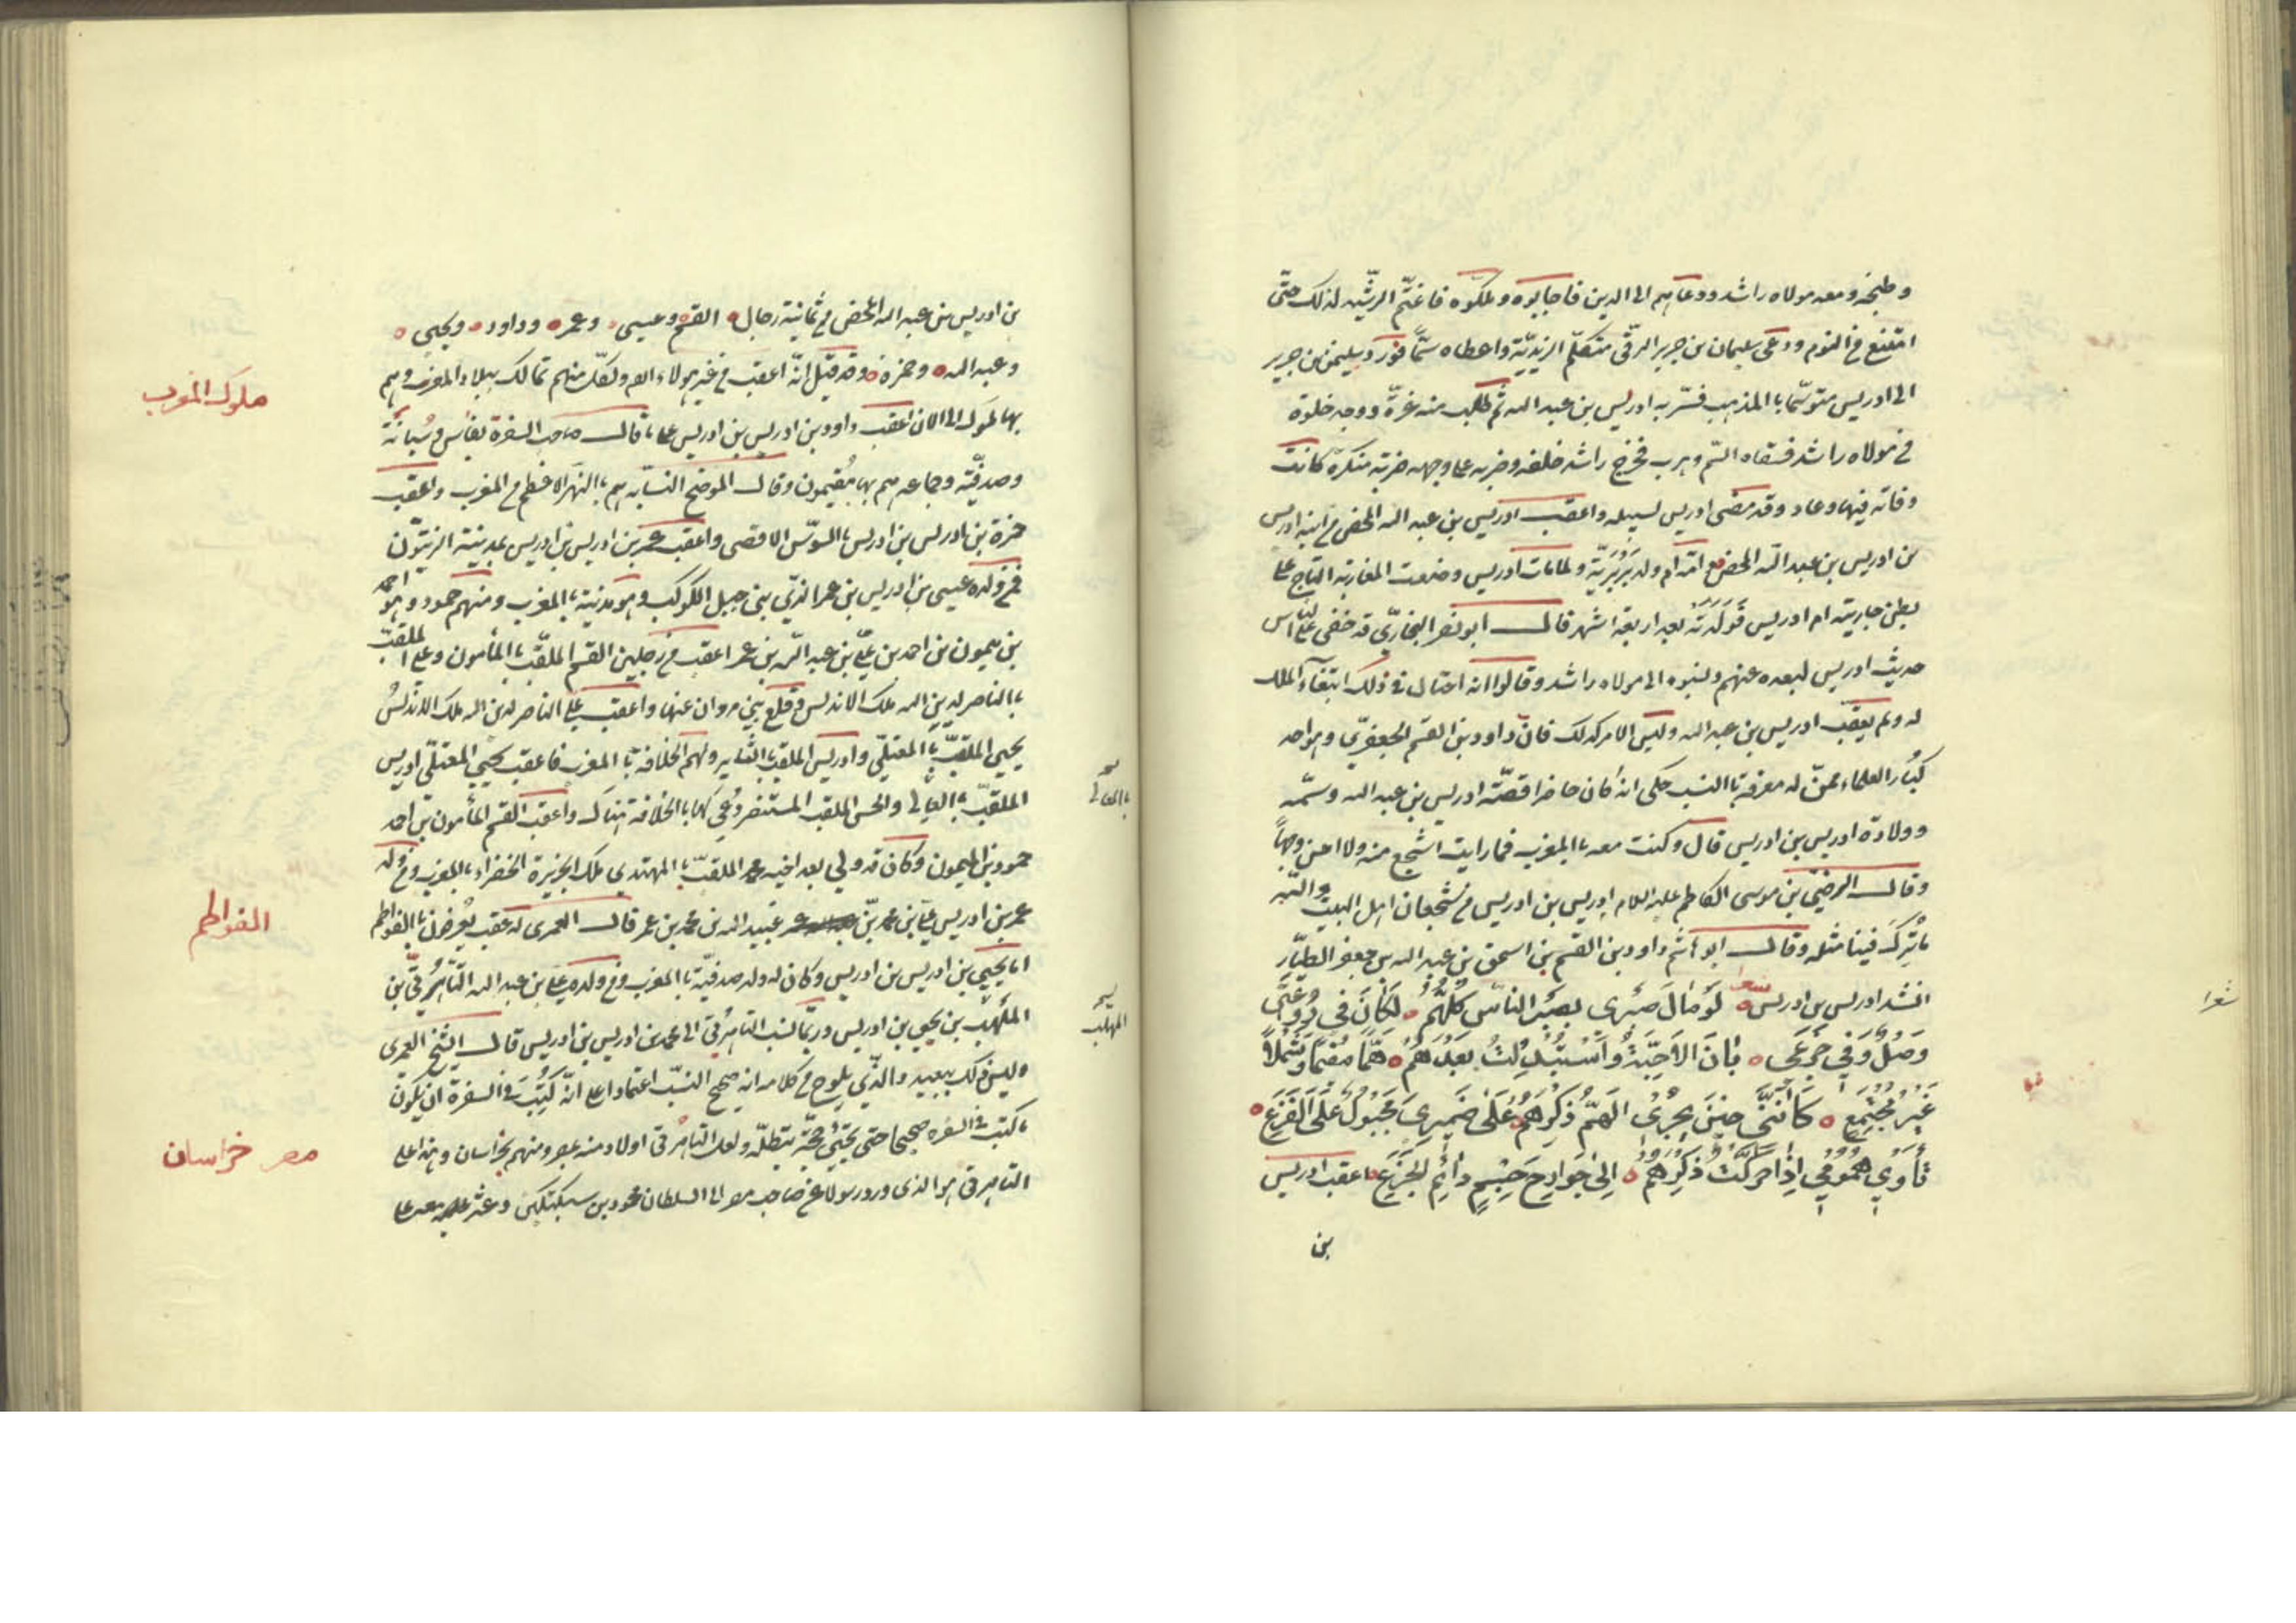 وطنجه ومعه مولاه راشد ودعاهم الى الدين فاجابوه وملكوه فاغتم الرشيد لذلك حتى
امتنع من النوم ودعى سليمان بن جرير الرقى متكلم الزيدية واعطاه سما فورد سليمن بن جرير
الى ادريس متوسما بالمذهب فسر به ادريس بن عبد الله ثم طلب منه غرة ووجد خلوة
من مولاه راشد فسقاه السم وهرب فخرج راشد خلفه وضربه على وجهه ضربة منكرة كانت
وفاته فيها وعاد وقد مضى ادريس لسبيله واعقب ادريس بن عبد الله المحض من ابنه ادريس
بن ادريس بن عبد الله المحض امه ام ولد بربرية ولما مات ادريس وضعت المغاربه التاج على
بطن جاريته ام ادريس فولدته بعد اربعة اشهر قال ابو نصر البخاري قد خفى على الناس
حديث ادريس لبعده عنهم ونسبوه الى مولاه راشد وقالوا انه احتال فى ذلك ابتغاء الملك
له ولم يعقب ادريس بن عبد الله وليس الامر كذلك فان داود بن القسم الجعفري وهو احد
كبار العلماء ممن له معرفة بالنسب حكى انه كان حاضرا قصة ادريس بن عبد الله وسمه
وولادة ادريس بن ادريس قال وكنت معه بالمغرب فما رايت اشجع منه ولا احسن وجها
وقال الرضى بن موسى الكاظم عليه السلام ادريس بن ادريس من شجعان اهل البيت والله
ما ترك فينا مثله وقال ابو هاشم داود بن القسم بن اسحق بن عبد الله بن جعفر الطيار
انشد ادريس بن ادريس لو مال صبرى بصبر الناس كلهم لكان فى روعتى
وضل وفى جزعى بان الاحبة واستبدلت بعدهم هما مقيما وشملا
غير مجتمع كاننى حين يجرى الهم ذكرهم على ضميرى مجبول على الفزع
تأوى همومي اذا حركت ذكرهم الى جوارح جسم دائم الجزع اعقب ادريس
بن
شعرا
بن ادريس بن عبد الله المحض من ثمانية رجال القسم وعيسى وعمر وداود ويحيى
وعبد الله وحمزة وقد قيل انه اعقب من غير هؤلاء ايضا ولكل منهم ممالك ببلاد المغرب وهم
بها ملوك الى الان اعقب داود بن ادريس بن ادريس على ما قال صاحب السفرة بفاس
وصدفية وجماعة منهم بها مقيمون وقال الموضح النسابه هم بالنهر الاعظم من المغرب واعقب
حمزة بن ادريس بن ادريس بالسوس الاقصى واعقب عمر بن ادريس بن ادريس بمدينة الزيتون
فمن ولده عيسى بن ادريس بن عمر الذي بنى جبل الكوكب وهو مدينة بالمغرب ومنهم حمود وهو احمد
بن ميمون بن احمد بن علي بن عبد الله بن عمر اعقب من رجلين القسم الملقب بالمأمون وعلي الملقب
بالناصر لدين الله ملك الاندلس وقلع بني مروان عنها واعقب علي الناصر لدين الله ملك الاندلس
يحيي الملقب بالمعتلي وادريس الملقب ولهم الخلافة بالمغرب فاعقب يحيي المعتلي ادريس
الملقب بالعالي والحسن الملقب المستنصر ودعي لهما بالخلافة هناك واعقب القسم المأمون بن احمد
حمود بن الميمون وكان قد ولي بعد اخيه محمد الملقب بالمهتدي ملك الجزيرة الخضراء بالمغرب ومن ولد
عمر بن ادريس علي بن محمد بن عبيد الله بن محمد بن عمر قال العمرى له عقب يعرفون بالفواطم
اما يحيي بن ادريس بن ادريس وكان له ولد صدفية بالمغرب ومن ولده علي بن عبد الله التاهرتي بن
المهلب بن يحيي بن ادريس وربما نسب التاهرتي الى محمد بن ادريس بن ادريس قال الشيخ العمرى
وليس ذلك ببعيد والذي يلوح من كلامه انه صحيح النسب اعتمادا على انه كتب فى السفرة ان يكون
ما كتب فى السفره صحيحا حتى يجئ حجة تبطله ولعلى التاهرتى اولاد منه بمصر ومنهم بخراسان وهذا على
التاهرتى هو الذى ورد رسولا عن صاحب مصر الى السلطان محمود بن سبكتكين
ملوك المغرب
الفواطم
مصر خراسان
بالمعالى
المهلب